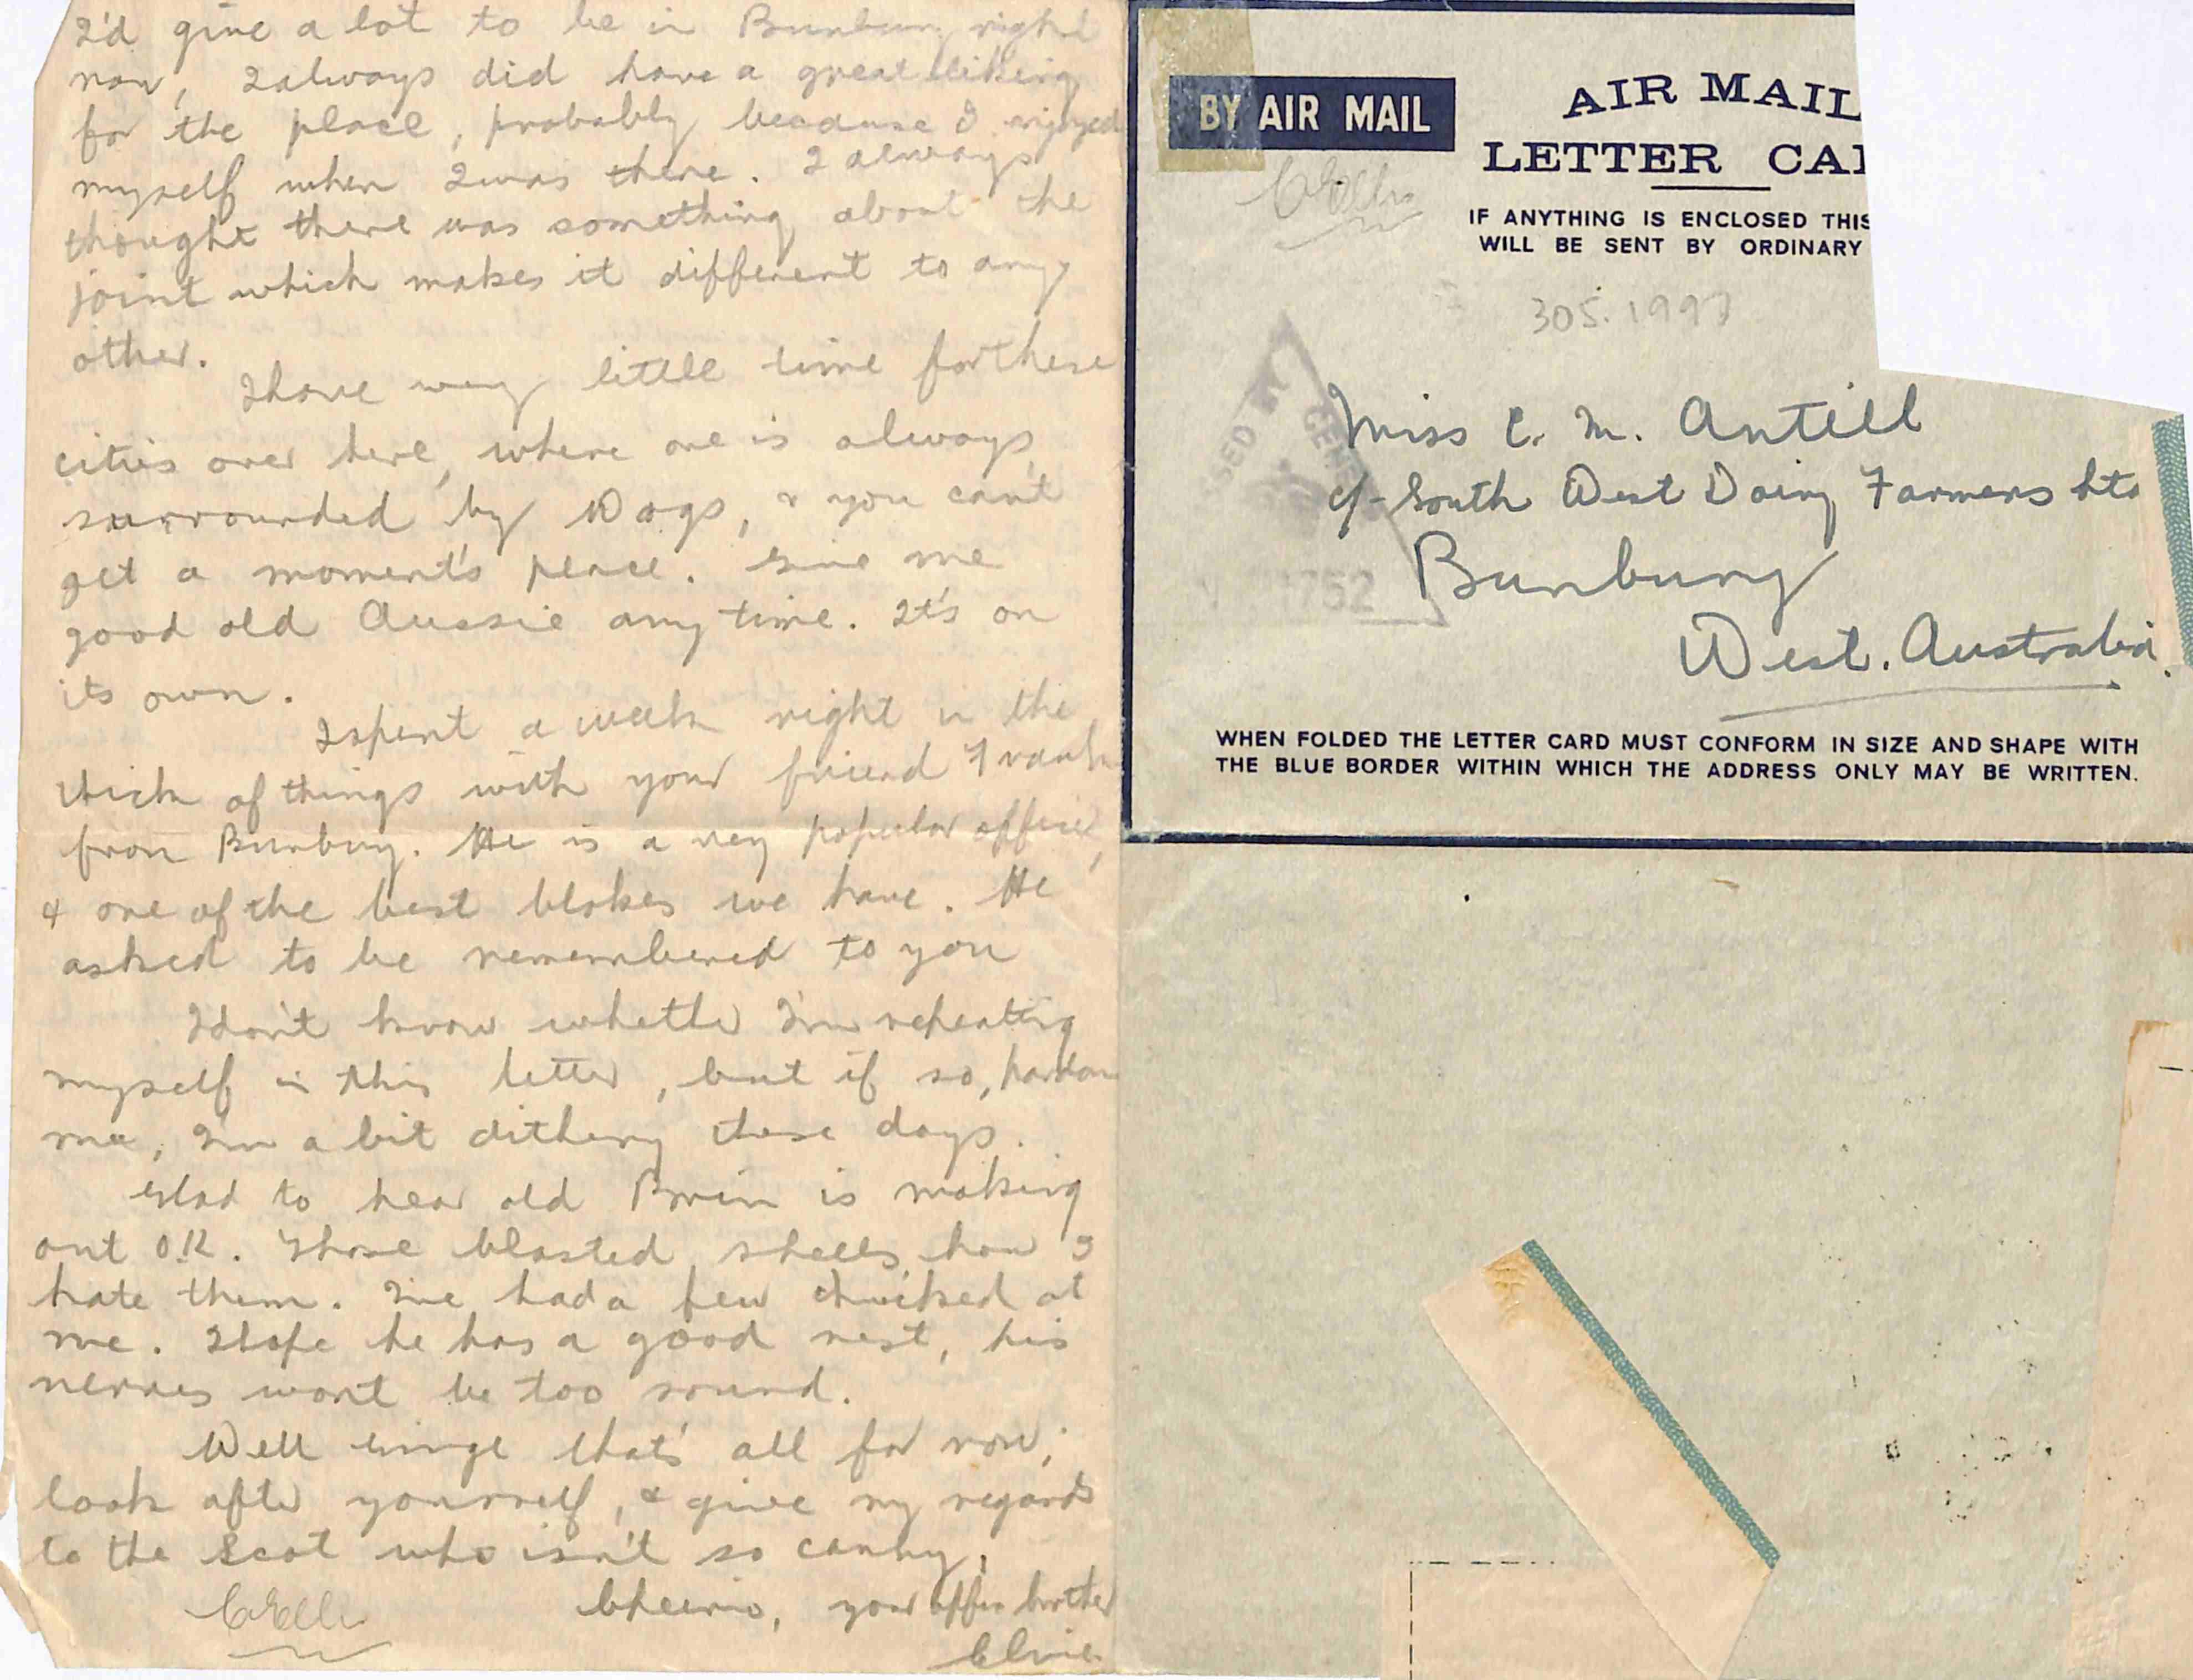 I'd give a lot to be in Bunbury right
now, I always did have a great liking
for the place, probably because I enjoyed
myself when I was there. I always
thought there was something about the
joint which makes it different to any
other.
I have very little time for these
cities over here, where one is always
surrounded by Wogs, & you can't
get a moment's peace. Give me
good old Aussie any time. It's on
its own.
I spent a week right in the
thick of things with your friend Frank
from Bunbury. He is a very popular officer,
& one of the best blokes we have. He
asked to be remembered to you
I don't know whether I'm repeating
myself in this letter, but if so, pardon
me, I'm a bit dithery these days.
Glad to hear old is making
out O.K. Those blasted shells, how I
hate them. I've had a few chucked at
me. Hope he has a good rest, his
nerves wont be too sound.
Well that's all for now;
look after yourself, & give my regards
to the Scot who isn't so canny.
Cheerio, your affec brother
Clive
BY AIR MAIL
AIR MAIL
LETTER CA
IF ANYTHING IS ENCLOSED THIS
WILL BE SENT BY ORDINARY
305.1997
SED BY CEN
1752
Miss C. M. Antill
c/- South West Dairy Farmers Ltd
Bunbury
West. Australia.
WHEN FOLDED THE LETTER CARD MUST CONFORM IN SIZE AND SHAPE WITH
THE BLUE BORDER WITHIN WHICH THE ADDRESS ONLY MAY BE WRITTEN.